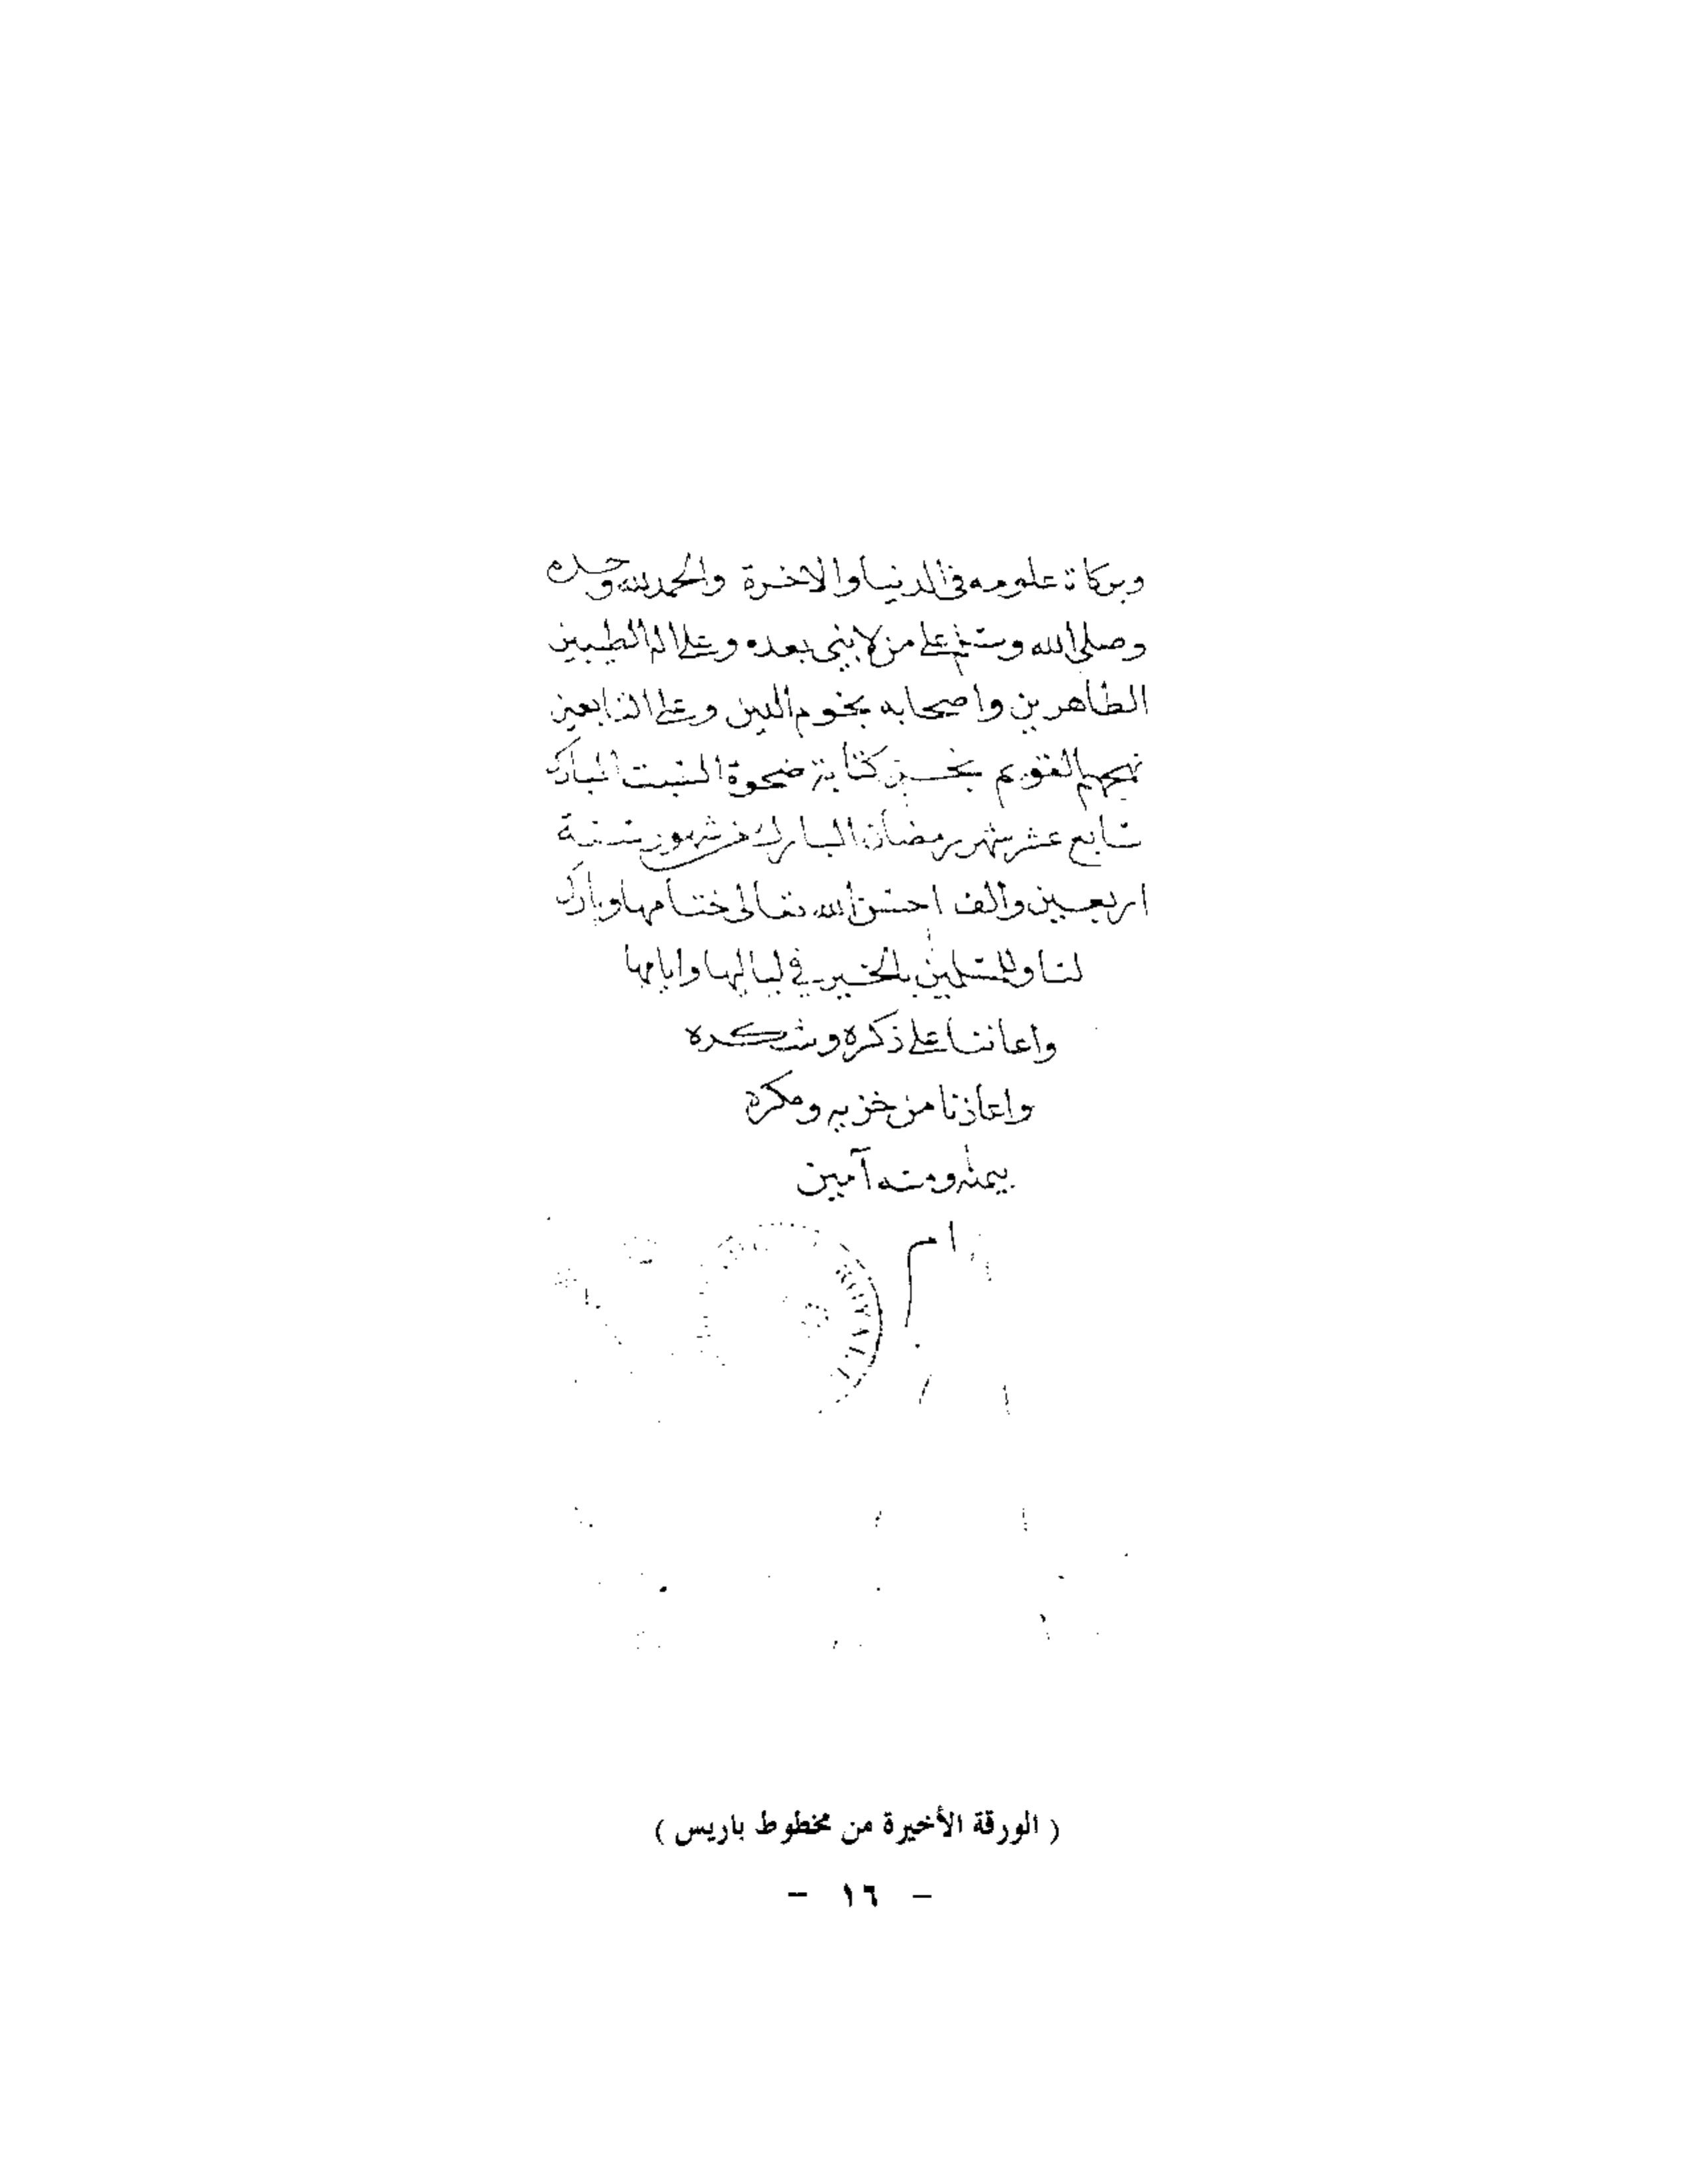 وبركاة علومه في الدنيا والاخرة والحمد لله وحده
وصلى الله وسلم على من لا نبي بعده وعلى اله الطيبين
الطاهرين واصحابه نجوم الدين وعلى التابعين
نهجهم القويم كتابة ضحوة السبت المبارك
سابع عشر شهر رمضان المبارك من شهور سنة
اربعين والف احسن الله تعالى ختامها وبارك
لنا وللمسلمين بالخير في لياليها وايامها
واعاننا على ذكره وشكره
واعاذنا من خزيه ومكره
بيمنه ومنه آمين
ام
( الورقة الأخيرة من مخطوط باريس )
– ١٦ –